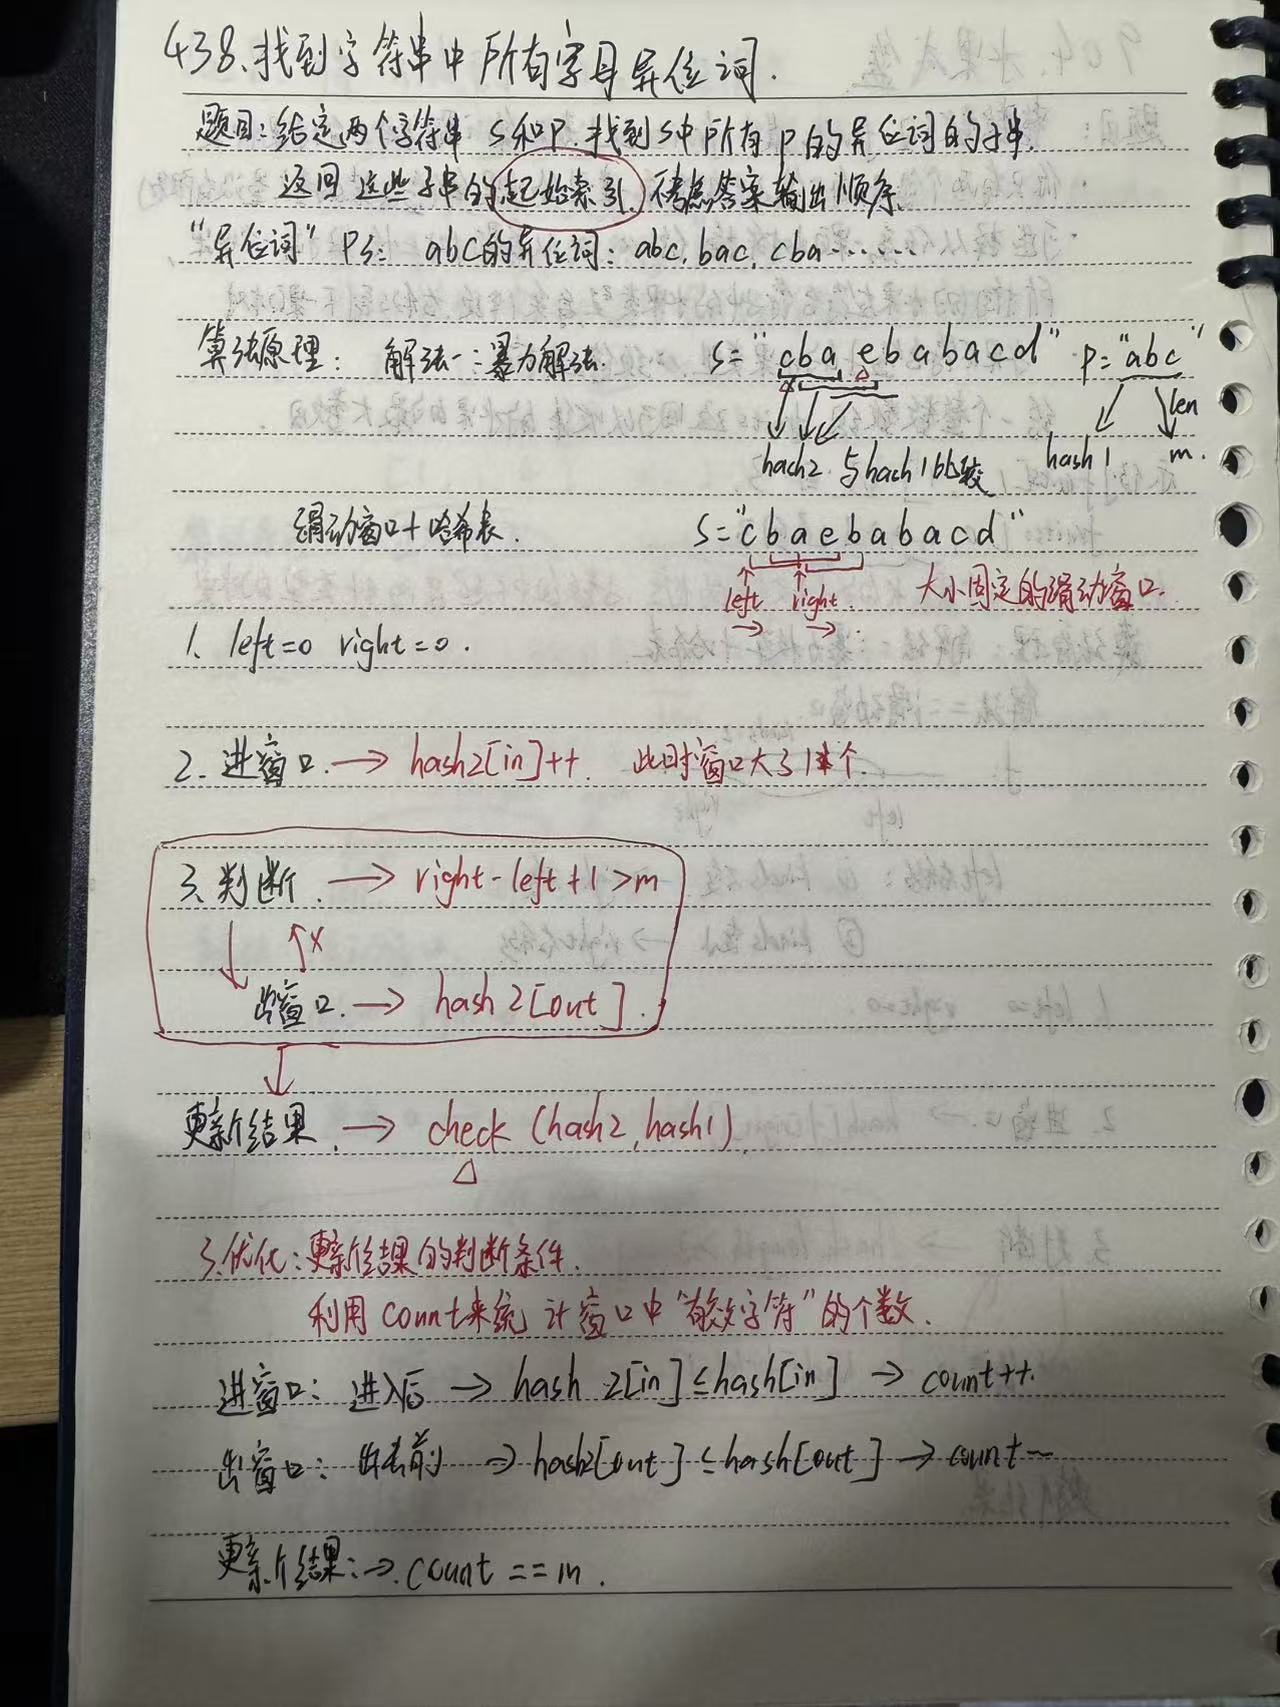 438、找到字符串中所有字母异位词.
题目:给定两个字符串 S和P,找到S中所有P的异位词的子串.
返回这些子串的起始索引. 不考虑答案输出顺序.
"异位词" PS: abc的异位词: abc, bac, cba......
算法原理: 解法一:暴力解法. S="cbaebabacd" P="abc"
len
hash2 与hash1比较 hash1 m.
滑动窗口+哈希表. S="cbaebabacd"
left right. 大小固定的滑动窗口.
→ →
1、left=0 right=0.
2. 进窗口. → hash2[in]++. 此时窗口大了1个.
3.判断. → right-left+1>m
↓ ↑×
出窗口. → hash2[out].
↓
更新结果. → check (hash2, hash1)
△
3.优化:更新结果的判断条件.
利用 count来统计窗口中"有效字符"的个数.
进窗口: 进入后 → hash2[in]≤hash[in] → count++.
出窗口: 出去前 → hash2[out]≤hash[out] → count--
更新结果: →. count == m.